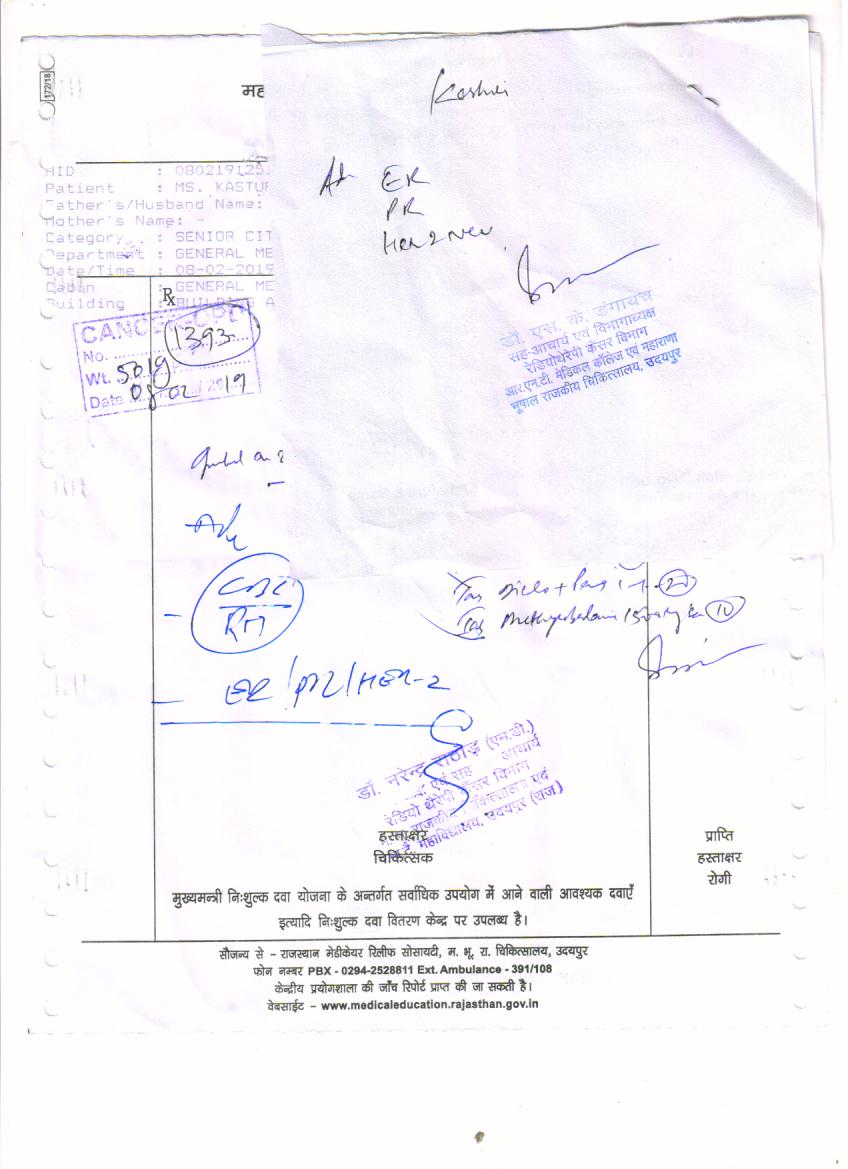 172/18
मह
HID : 080219125
Patient : MS. KASTUR
Father's/Husband Name:
Mother's Name: -
Category : SENIOR CIT
Department : GENERAL ME
Date/Time : 08-02-2019
Cabin : GENERAL ME
Building : BUILDING A
Rx
CANCER OPD
No. 1393
Wt. 50
Date 08 02 2019
Ad ER
PR
डॉ. एस. के. डंगायच
सह-आचार्य एवं विभागाध्यक्ष
रेडियोथेरेपी कैंसर विभाग
आर.एन.टी. मेडिकल कॉलेज एवं महाराणा
भूपाल राजकीय चिकित्सालय, उदयपुर
Adv
CBC
ER/PR/HER-2
डॉ. नरेन्द्र राठौड़ (एन.डी.)
एवं सह आचार्य
रेडियो थैरेपी कैंसर विभाग
राजकीय चिकित्सालय एवं
महाविद्यालय, उदयपुर (राज.)
हस्ताक्षर
चिकित्सक
प्राप्ति
हस्ताक्षर
रोगी
मुख्यमन्त्री निःशुल्क दवा योजना के अन्तर्गत सर्वाधिक उपयोग में आने वाली आवश्यक दवाएँ
इत्यादि निःशुल्क दवा वितरण केन्द्र पर उपलब्ध है।
सौजन्य से – राजस्थान मेडीकेयर रिलीफ सोसायटी, म. भू. रा. चिकित्सालय, उदयपुर
फोन नम्बर PBX - 0294-2528811 Ext. Ambulance - 391/108
केन्द्रीय प्रयोगशाला की जाँच रिपोर्ट प्राप्त की जा सकती है।
वेबसाईट – www.medicaleducation.rajasthan.gov.in